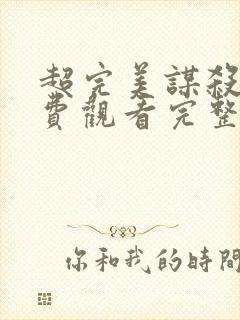 超完美謀殺
費觀看完整
你和我的時間